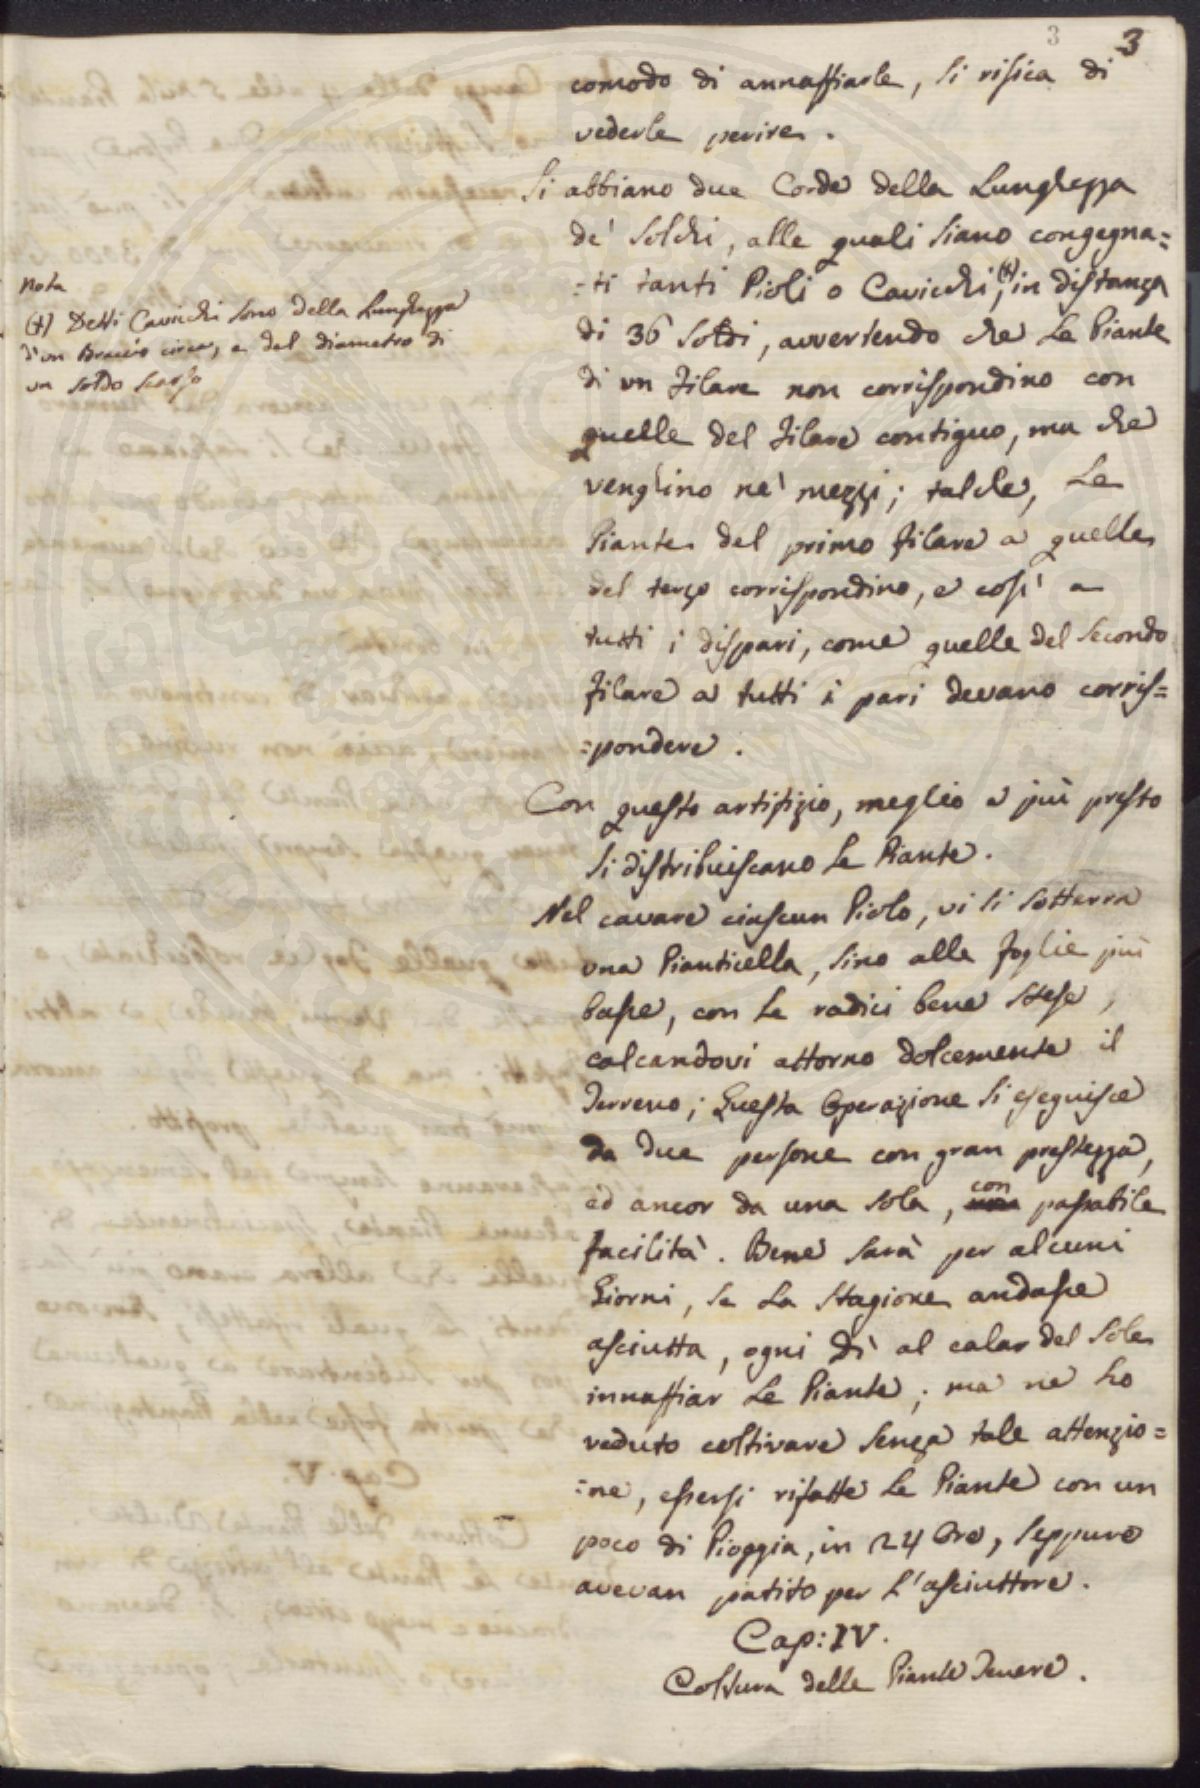 3 3
comodo di annaffiarle, si risica di
vederle perire.
Si abbiano due Corde della Lunghezza
de' Solchi, alle quali siano congegna=
=ti tanti Pioli o Cavicchi,(+) in distanza
di 36 Soldi, avvertendo che Le Piante
di un Filare non corrispondino con
quelle del Filare contiguo, ma che
venghino ne' mezzi; talche, Le
Piante del primo Filare a quelle
del terzo corrispondino, e così a
tutti i dispari, come quelle del Secondo
Filare a tutti i pari devano corris=
=pondere.
Con questo artifizio, meglio e più presto
si distribuiscano Le Piante.
Nel cavare ciascun Piolo, vi si sotterra
una Pianticella, sino alle foglie più
basse, con Le radici bene Stese,
calcandovi attorno dolcemente il
Terreno; Questa Operazione si eseguisce
da due persone con gran prestezza,
ed ancor da una sola, con passabile
facilità. Bene sarà per alcuni
Giorni, se La Stagione andasse
asciutta, ogni dì al calar del Sole
innaffiar Le Piante; ma ne ho
veduto coltivare senza tale attenzio=
=ne, essersi rifatte Le Piante con un
poco di Pioggia, in 24 Ore, seppure
avevan patito per L'asciuttore.
Cap: IV.
Coltura delle Piante Tenere.
Nota
(+) Detti Cavicchi sono della Lunghezza
d'un Braccio circa, e del diametro di
un soldo scarso